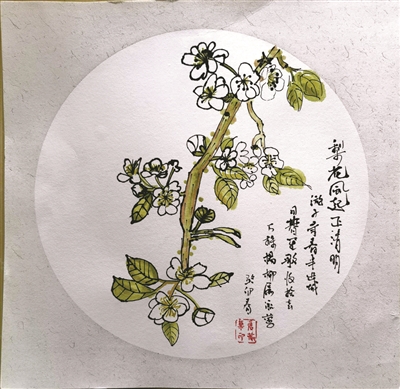 梨花风起正清明
游子寻春半出城
日暮笙歌收拾去
万株杨柳属流莺
癸卯春